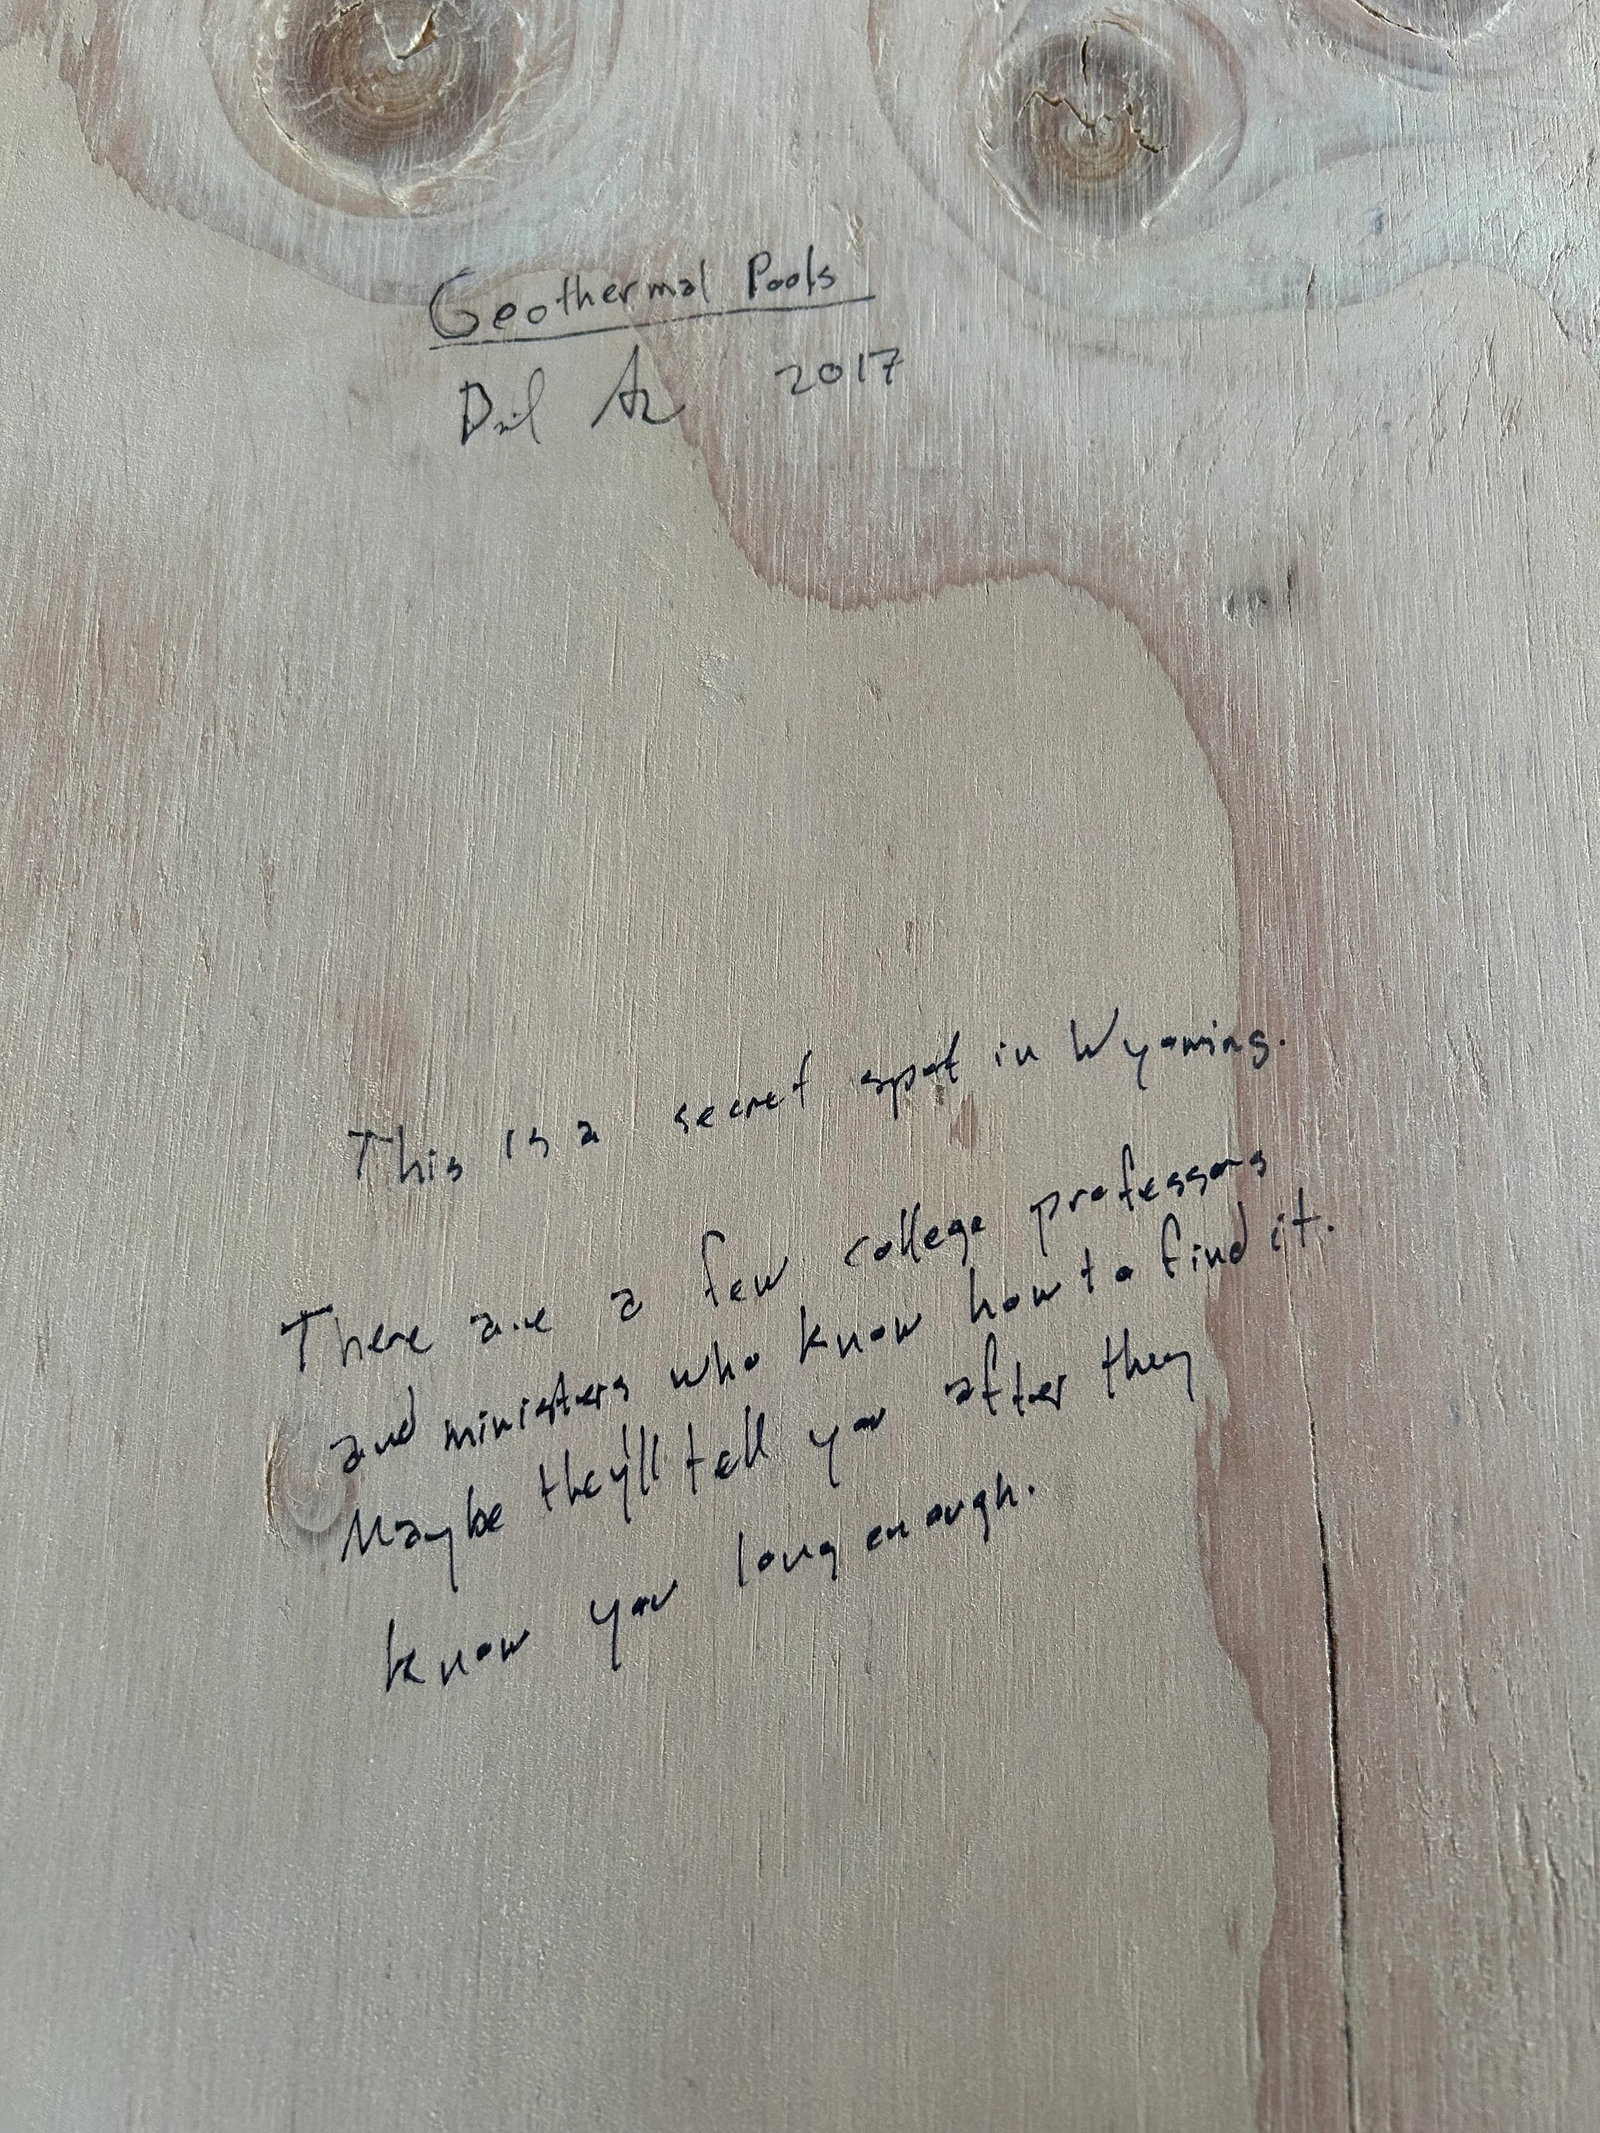 Geothermal Pools
2017
This is a secret spot in Wyoming.
There are a few college professors
and ministers who know how to find it.
Maybe they'll tell you after they
know you long enough.